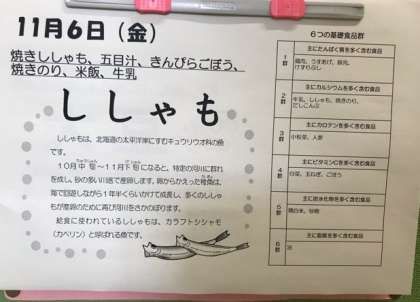 11月6日（金）
焼きししゃも、五目汁、きんぴらごぼう、
焼きのり、米飯、牛乳
ししゃも
ししゃもは、北海道の太平洋岸にすむキュウリウオ科の魚
です。
10月中旬～11月下旬になると、特定の河川に群れ
を成し、砂の多い川底で産卵します。卵からかえった稚魚は、
海で回遊しながら1年半くらいかけて成長し、多くのししゃ
もが産卵のために再び河川をさかのぼります。
給食に使われているししゃもは、カラフトシシャモ
（カペリン）と呼ばれる魚です。
6つの基礎食品群
1群
主にたんぱく質を多く含む食品
鶏肉、うすあげ、豚肉、
けずりぶし
2群
主にカルシウムを多く含む食品
牛乳、ししゃも、焼きのり、
だしこんぶ
3群
主にカロテンを多く含む食品
小松菜、人参
4群
主にビタミンCを多く含む食品
白菜、玉ねぎ、ごぼう
5群
主に炭水化物を多く含む食品
精白米、砂糖
6群
主に脂肪を多く含む食品
油